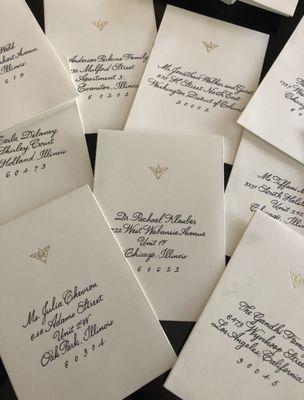 Webb
Avenue
Illinois
Anderson Perkins Family
Mulford Street
Apartment 3
Evanston, Illinois
60202
Mr. Jonathan Walker and Guest
Street North East
Washington District of Columbia
20002
Carla Delaney
Shirley Court
Holland, Illinois
60473
Dr. Rachael Klauber
West Wabansia Avenue
Unit 1F
Chicago, Illinois
60622
Ms. Tiffani
South
Chicago, Illinois
Ms. Julia Chevron
Adams Street
Unit 2W
Oak Park, Illinois
60304
The Gandhi Family
6475 Wynkoop Street
Los Angeles, California
90045